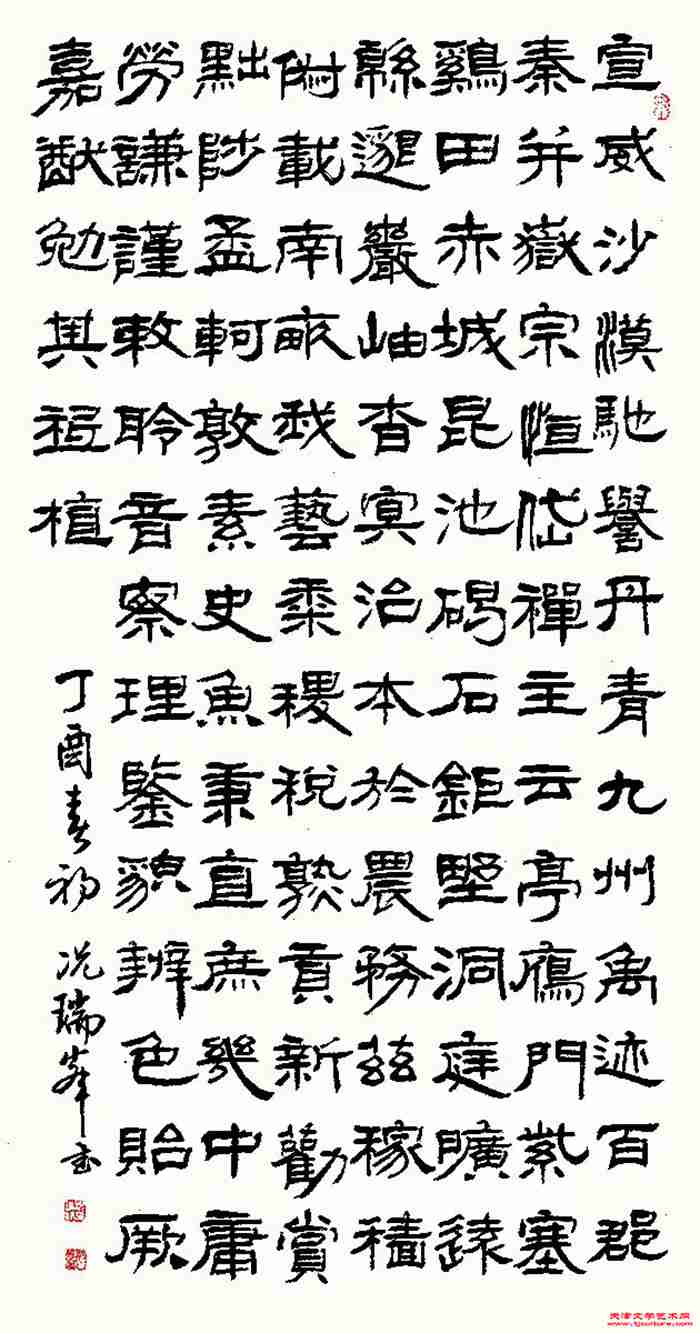 宣威沙漠馳譽丹青九州禹迹百郡
秦并嶽宗恒岱禪主云亭鴈門紫塞
鷄田赤城昆池碣石鉅野洞庭曠遠
緜邈巖岫杳冥治本於農務茲稼穡
俶載南畝我藝黍稷稅熟貢新勸賞
黜陟孟軻敦素史魚秉直庶幾中庸
勞謙謹敕聆音察理鑒貌辨色貽厥
嘉猷勉其祗植
丁酉春初 况瑞峰书
天津文学艺术网
www.tjculture.com